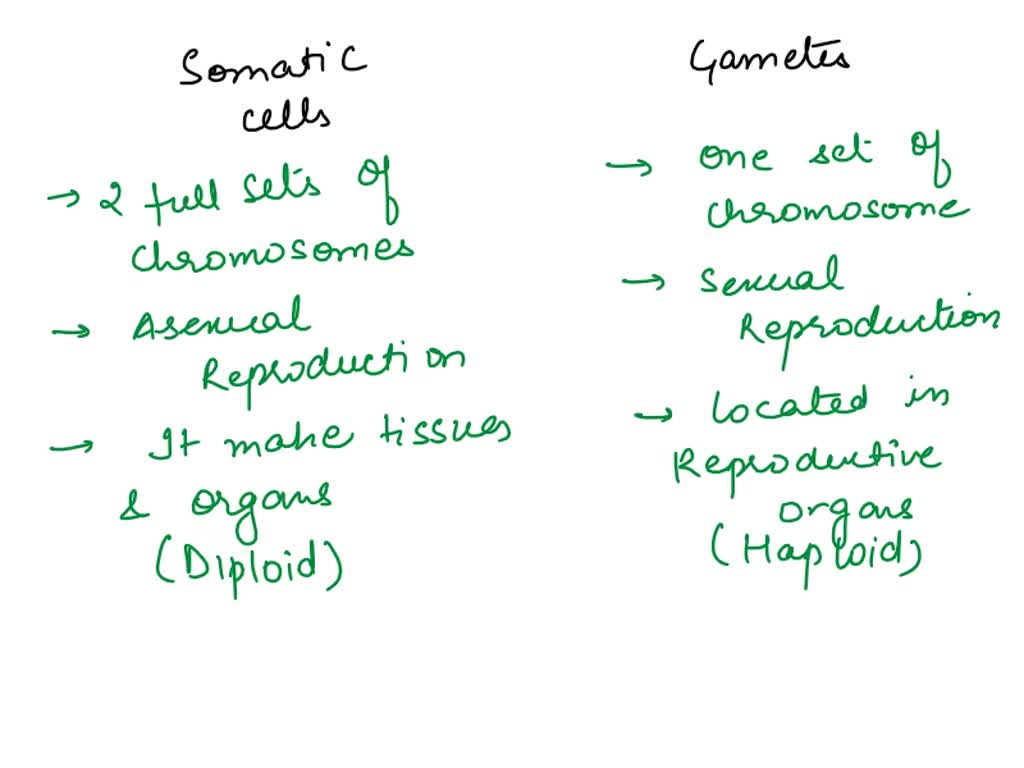 Somatic
cells
→ 2 full sets of
chromosomes
→ Asexual
Reproduction
→ It make tissues
& organs
(Diploid)
Gametes
→ one set of
chromosome
→ Sexual
Reproduction
→ located in
Reproductive
organs
(Haploid)